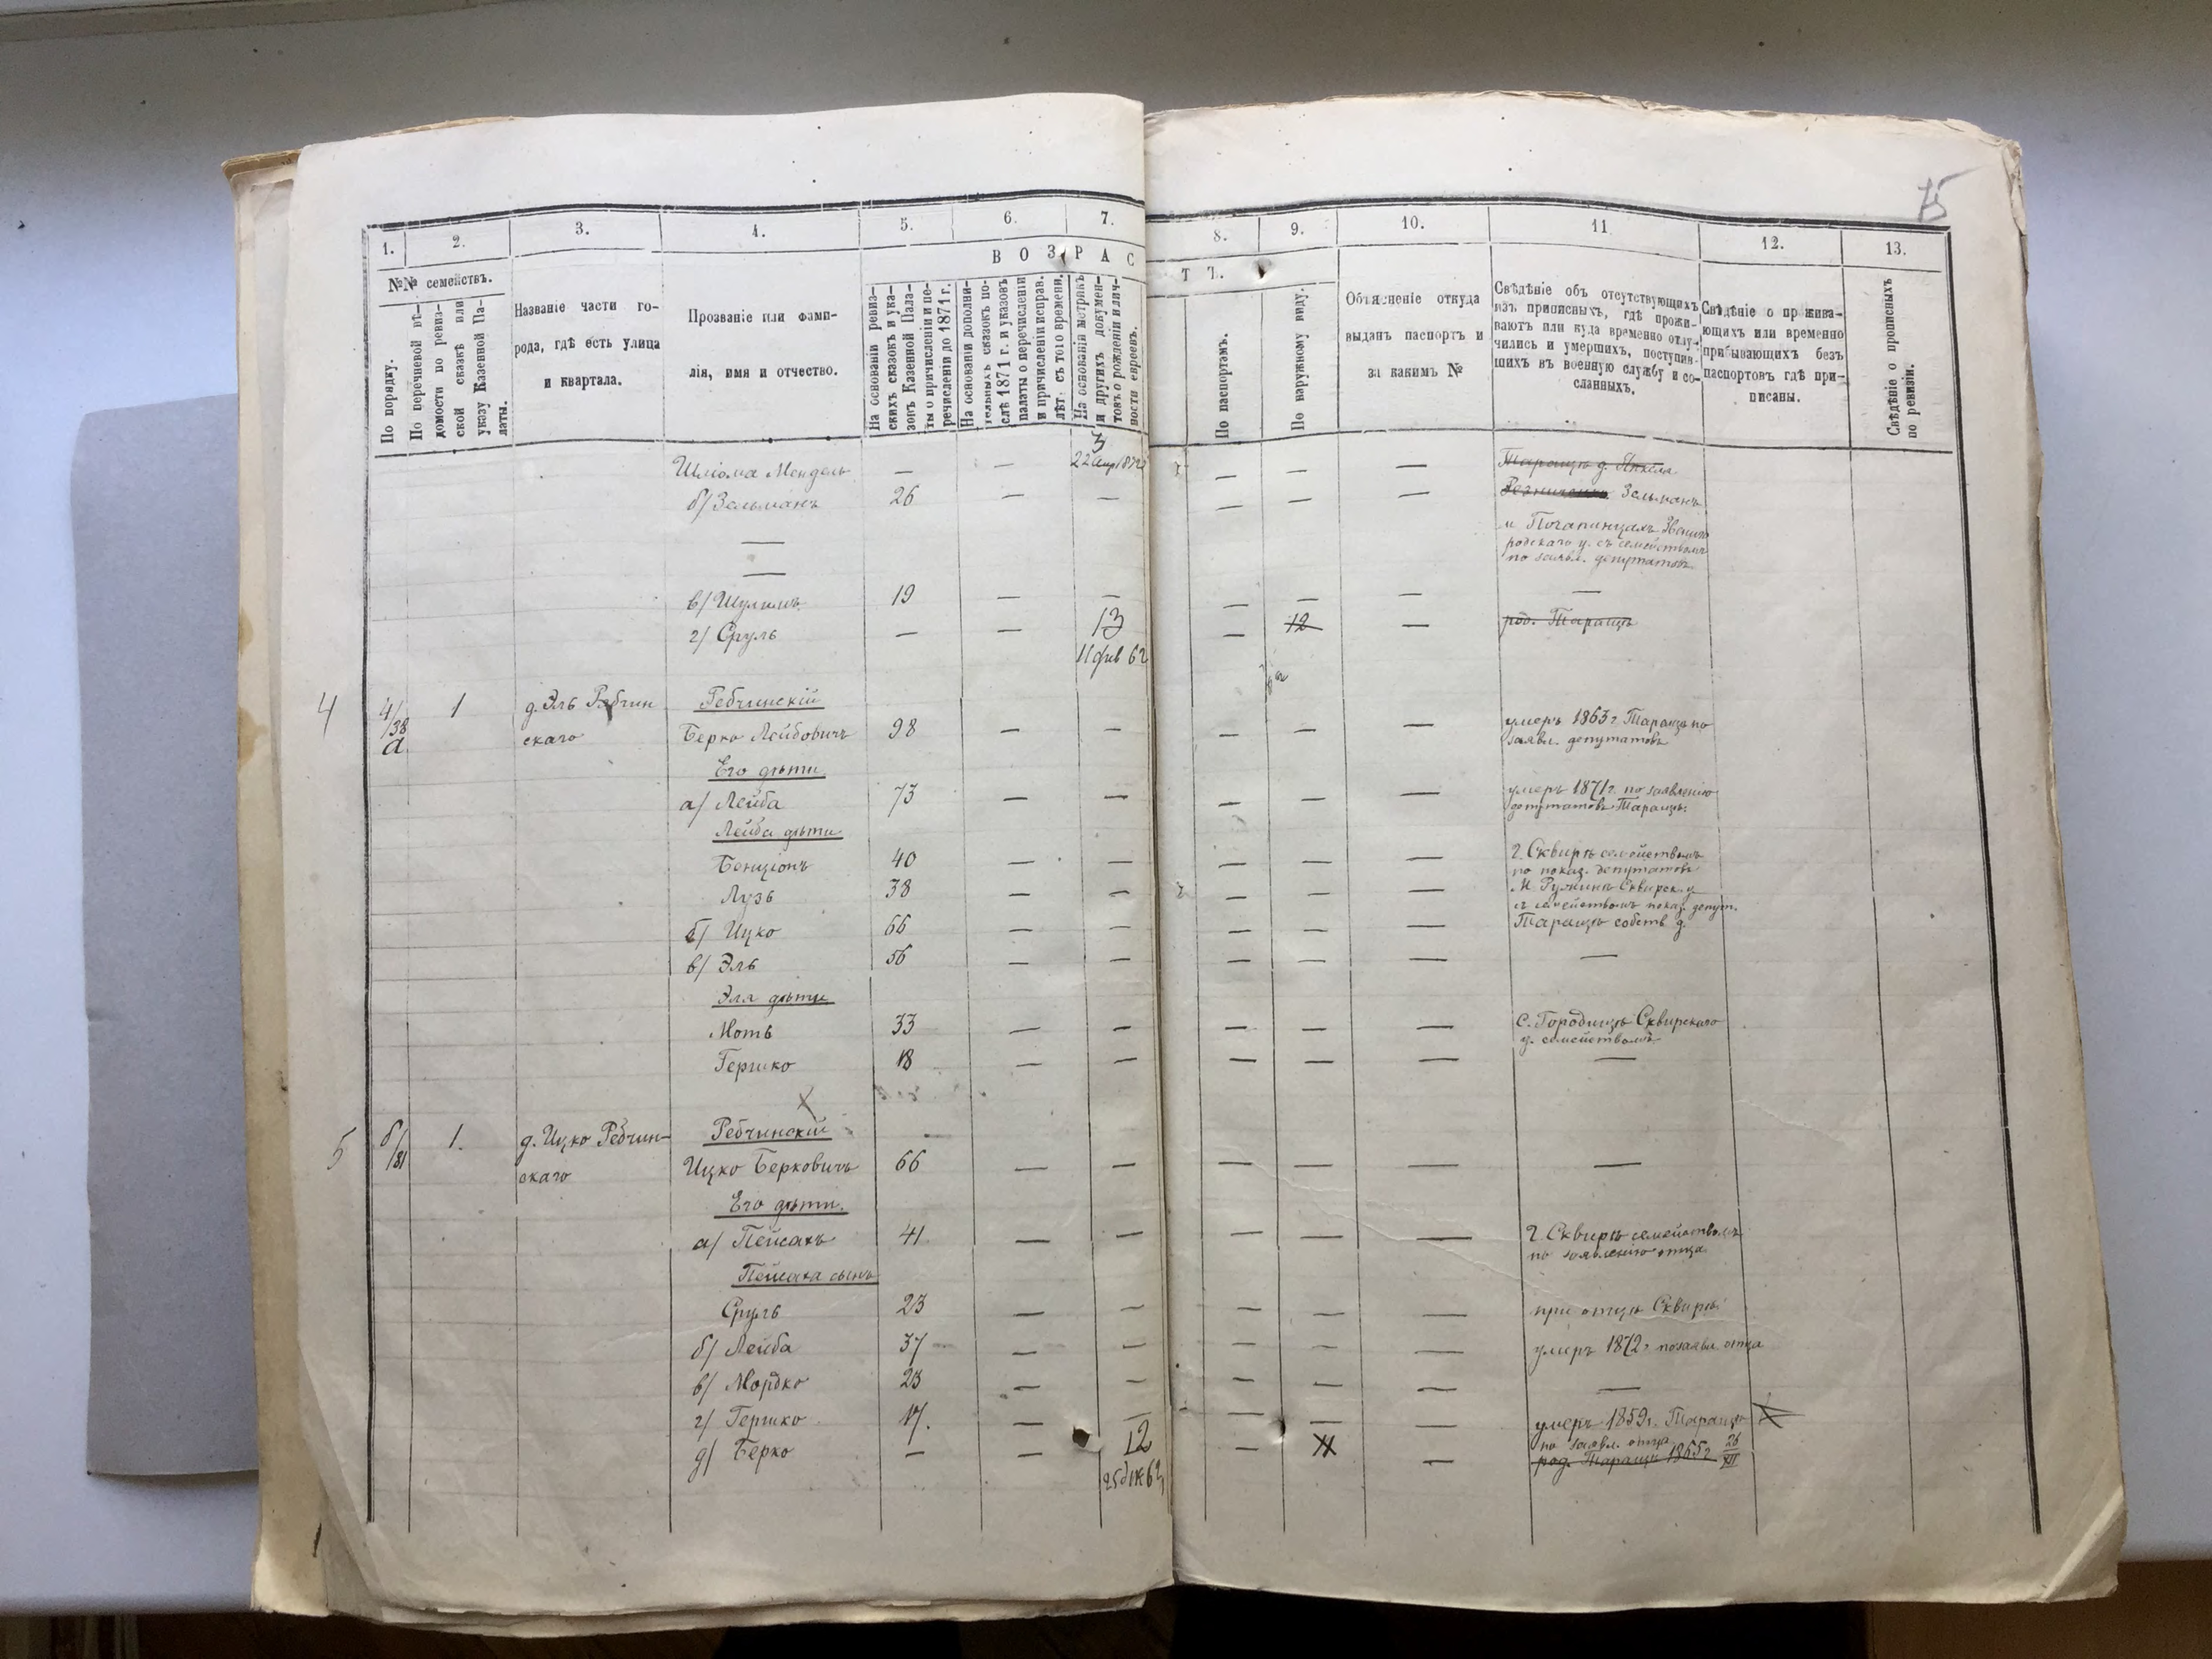 75
1. 2. 3. 4. 5. 6. 7. 8. 9. 10. 11. 12. 13.
ВОЗРАСТЪ.
№№ семействъ.
По порядку.
По перечневой вѣ-
домости по ревиз-
ской сказкѣ или
указу Казенной Па-
латы.
Названіе части го-
рода, гдѣ есть улица
и квартала.
Прозваніе или фами-
лія, имя и отчество.
На основаніи ревиз-
скихъ сказокъ и ука-
зовъ Казенной Пала-
ты о причисленіи и пе-
речисленіи до 1871 г.
На основаніи дополни-
тельныхъ сказокъ по-
слѣ 1871 г. и указовъ
палаты о перечисленіи
и причисленіи исправ.
лѣт. съ того времени.
На основаніи метрикъ
и другихъ докумен-
товъ о рожденіи и лич-
ности евреевъ.
По паспортамъ.
По наружному виду.
Объясненіе откуда
выданъ паспортъ и
за какимъ №
Свѣдѣніе объ отсутствующихъ
изъ приписныхъ, гдѣ прожи-
ваютъ или куда временно отлу-
чились и умершихъ, поступив-
шихъ въ военную службу и со-
сланныхъ.
Свѣдѣніе о прожива-
ющихъ или временно
прибывающихъ безъ
паспортовъ гдѣ при-
писаны.
Свѣдѣніе о прописныхъ
по ревизіи.
3
Шліома Мендель — — 22 апр 1872 — — — Таращѣ д. Янкеля
б/ Зельманъ 26 — — — — — Зельманъ
м Почапинцахъ Звениго
родскаго у. съ семействомъ
по заявл. депутатовъ
—
—
в/ Шулимъ 19 — — — — — —
г/ Сруль — — 13 — 12 — род. Таращѣ
11 фев 62
4 4/38 а 1 д. Эль Ребчин Ребчинскій
скаго Берко Лейбовичъ 98 — — — — — умеръ 1863 г Таращѣ по
заявл. депутатовъ
Его дѣти
а/ Лейба 73 — — — — — умеръ 1871 г. по заявленію
депутатовъ Таращѣ.
Лейба дѣти
Бенціонъ 40 — — — — — г. Сквирѣ семействомъ
по показ. депутатовъ
Лузь 38 — — — — — М. Ружинѣ Сквирск. у
съ семействомъ показ. депут.
б/ Ицко 66 — — — — — Таращѣ собств д.
в/ Эль 56 — — — — — —
Эля дѣти
Моть 33 — — — — — С. Городищѣ Сквирскаго
у. семействомъ
Гершко 18 — — — — — —
5 5/81 1. д. Ицко Ребчин- Ребчинскій
скаго Ицко Берковичъ 66 — — — — — —
Его дѣти.
а/ Пейсахъ 41 — — — — — г. Сквирѣ семействомъ
по заявленію отца
Пейсаха сынъ
Сруль 23 — — — — — при отцѣ Сквирѣ
б/ Лейба 37 — — — — — умеръ 1872 г позаявл. отца
в/ Мордко 23 — — — — — —
г/ Гершко 17. — — — — — умеръ 1859 г. Таращѣ
по заявл. отца
д/ Берко — — 12 — 11 — род. Таращѣ 1865 г 26/XII
25 дек 63